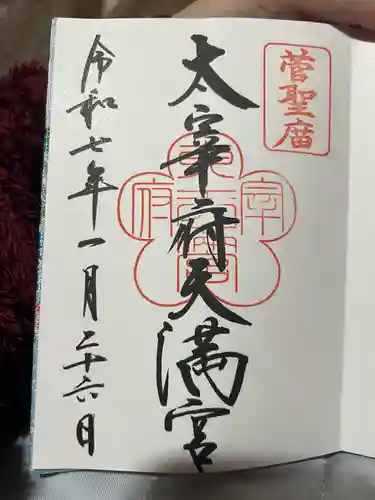 菅聖廟
太宰府天満宮
令和七年一月二十六日